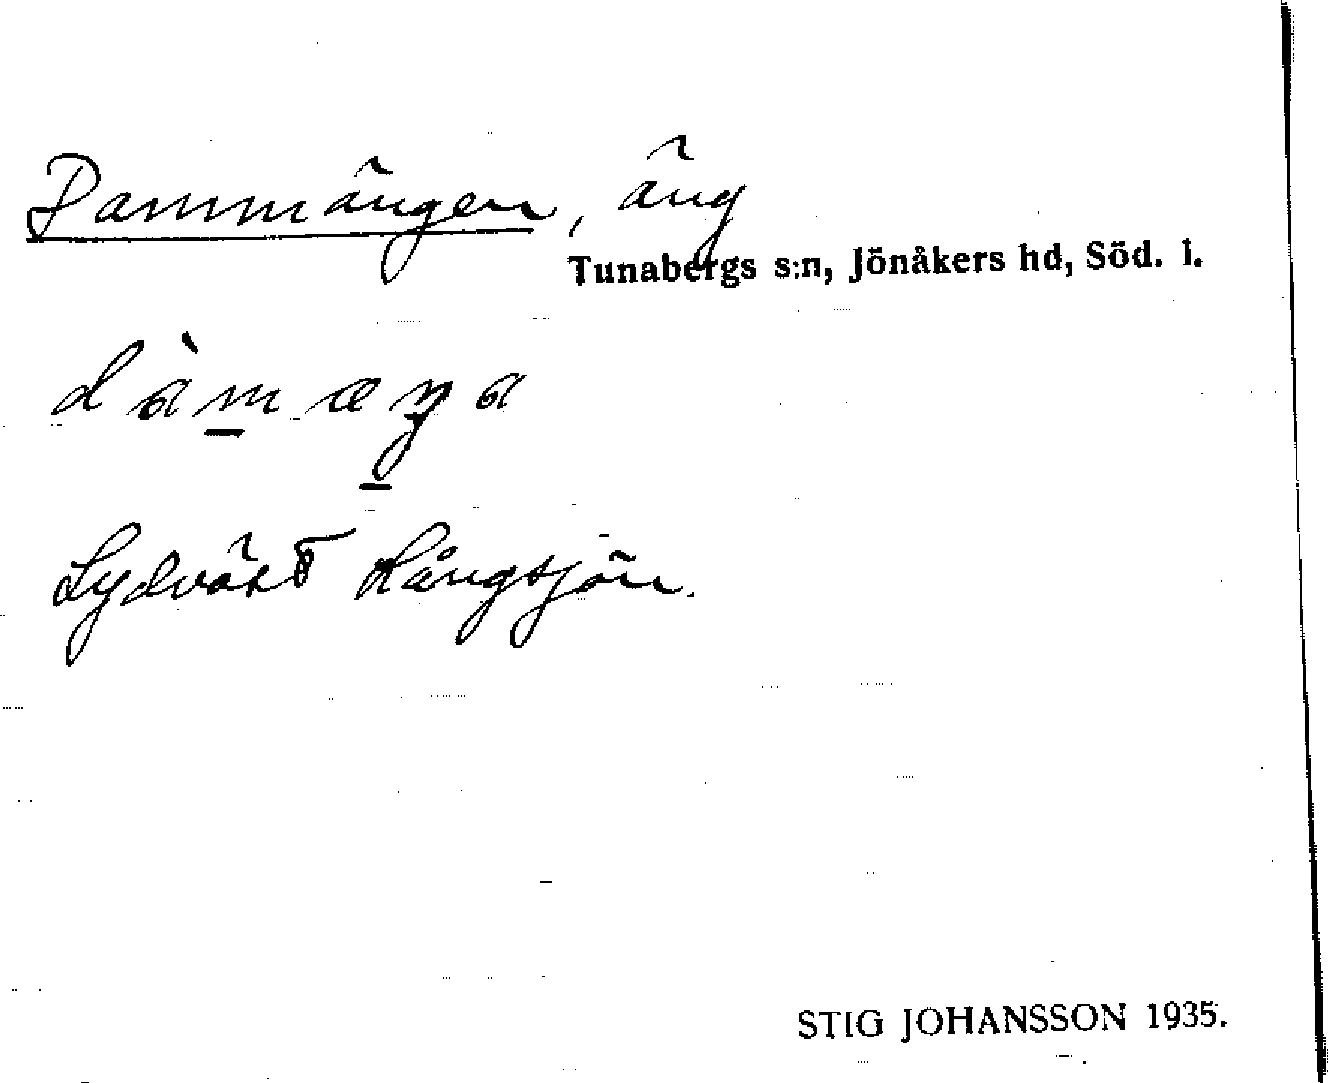 Dammängen, äng
Tunabergs s:n, Jönåkers hd, Söd. l.
dàmæŋa
Sydväst Långsjön.
STIG JOHANSSON 1935.